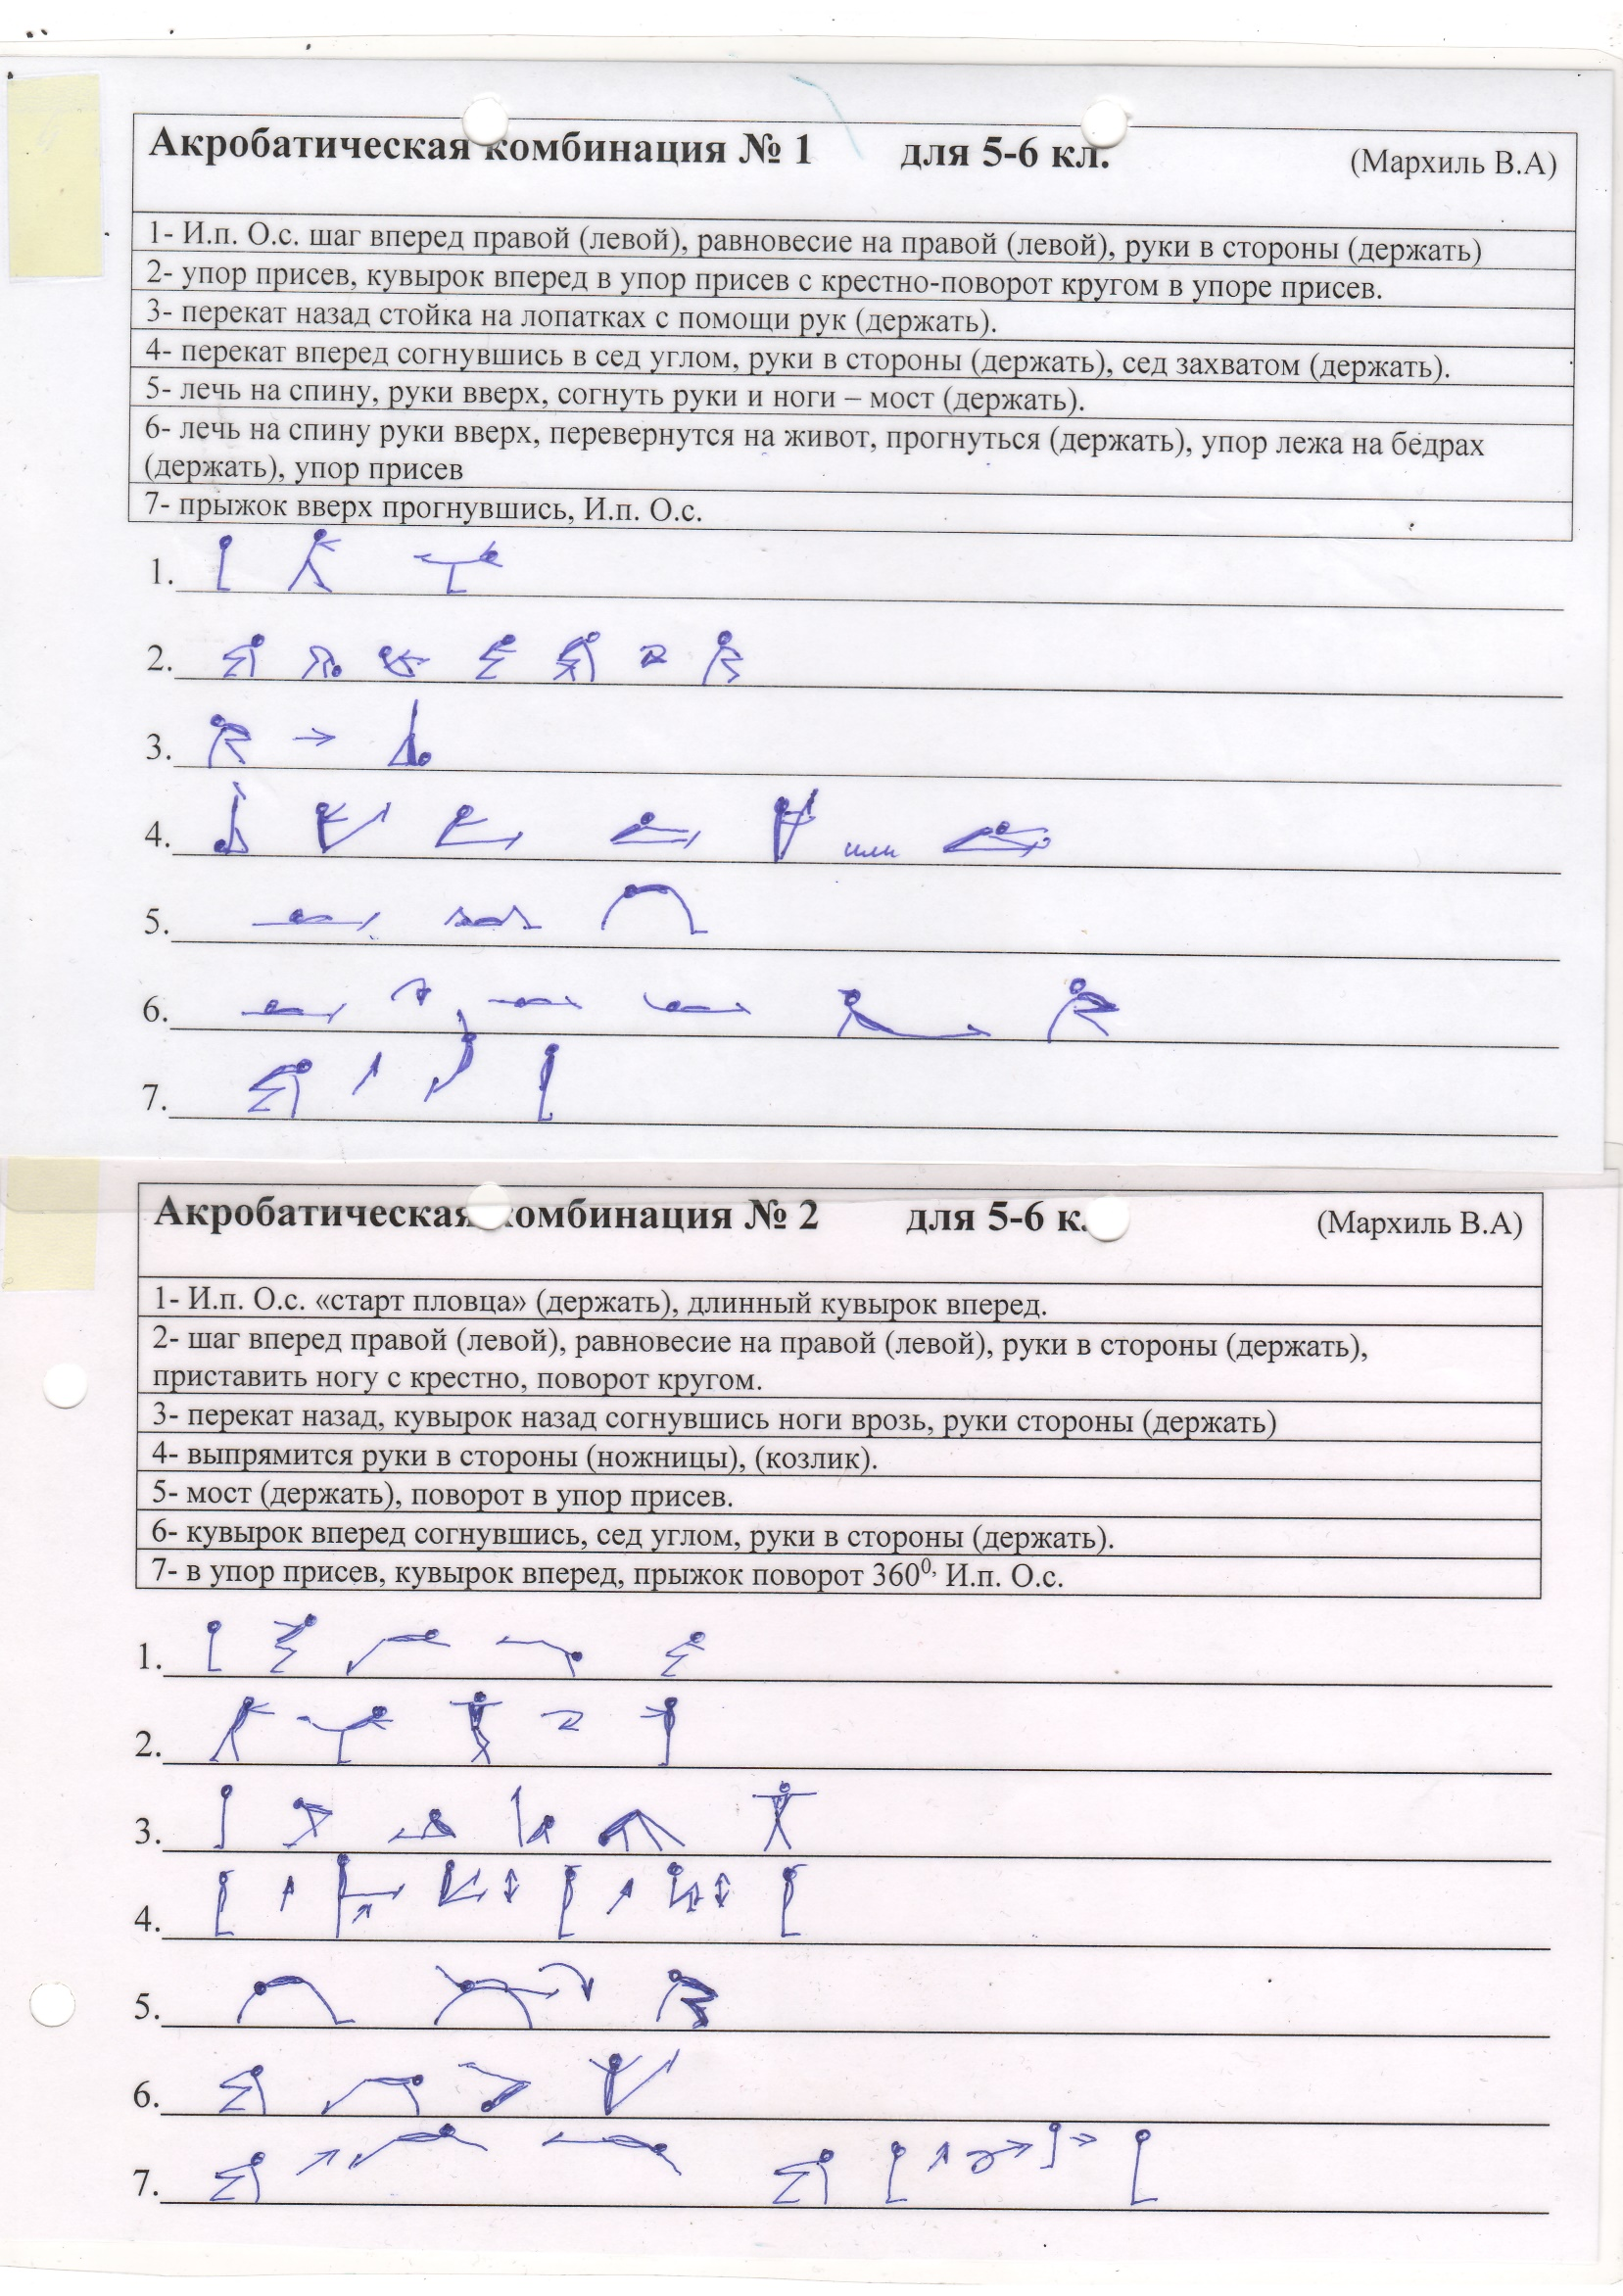 Акробатическая комбинация № 1 для 5-6 кл. (Мархиль В.А)
1- И.п. О.с. шаг вперед правой (левой), равновесие на правой (левой), руки в стороны (держать)
2- упор присев, кувырок вперед в упор присев с крестно-поворот кругом в упоре присев.
3- перекат назад стойка на лопатках с помощи рук (держать).
4- перекат вперед согнувшись в сед углом, руки в стороны (держать), сед захватом (держать).
5- лечь на спину, руки вверх, согнуть руки и ноги – мост (держать).
6- лечь на спину руки вверх, перевернутся на живот, прогнуться (держать), упор лежа на бедрах
(держать), упор присев
7- прыжок вверх прогнувшись, И.п. О.с.
1.
2.
3.
4. или
5.
6.
7.
Акробатическая комбинация № 2 для 5-6 к. (Мархиль В.А)
1- И.п. О.с. «старт пловца» (держать), длинный кувырок вперед.
2- шаг вперед правой (левой), равновесие на правой (левой), руки в стороны (держать),
приставить ногу с крестно, поворот кругом.
3- перекат назад, кувырок назад согнувшись ноги врозь, руки стороны (держать)
4- выпрямится руки в стороны (ножницы), (козлик).
5- мост (держать), поворот в упор присев.
6- кувырок вперед согнувшись, сед углом, руки в стороны (держать).
7- в упор присев, кувырок вперед, прыжок поворот 360⁰, И.п. О.с.
1.
2.
3.
4.
5.
6.
7.